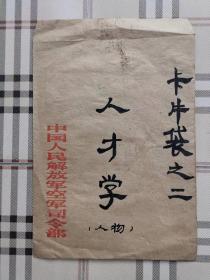 卡片袋之二
人才学
（人物）
中国人民解放军空军司令部